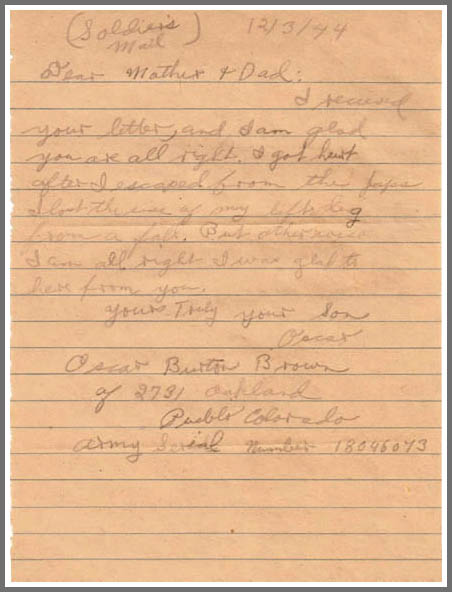 (Soldier's Mail) 12/3/44
Dear Mother & Dad:
I recieved
your letter, and I am glad
you are all right. I got hurt
after I escaped from the japs
I lost the use of my left leg
from a fall. But otherwise
I am all right I was glad to
here from you.
Yours Truly your Son
Oscar
Oscar Burton Brown
of 2731 Oakland
Pueblo Colorado
Army Serial Number 18046073